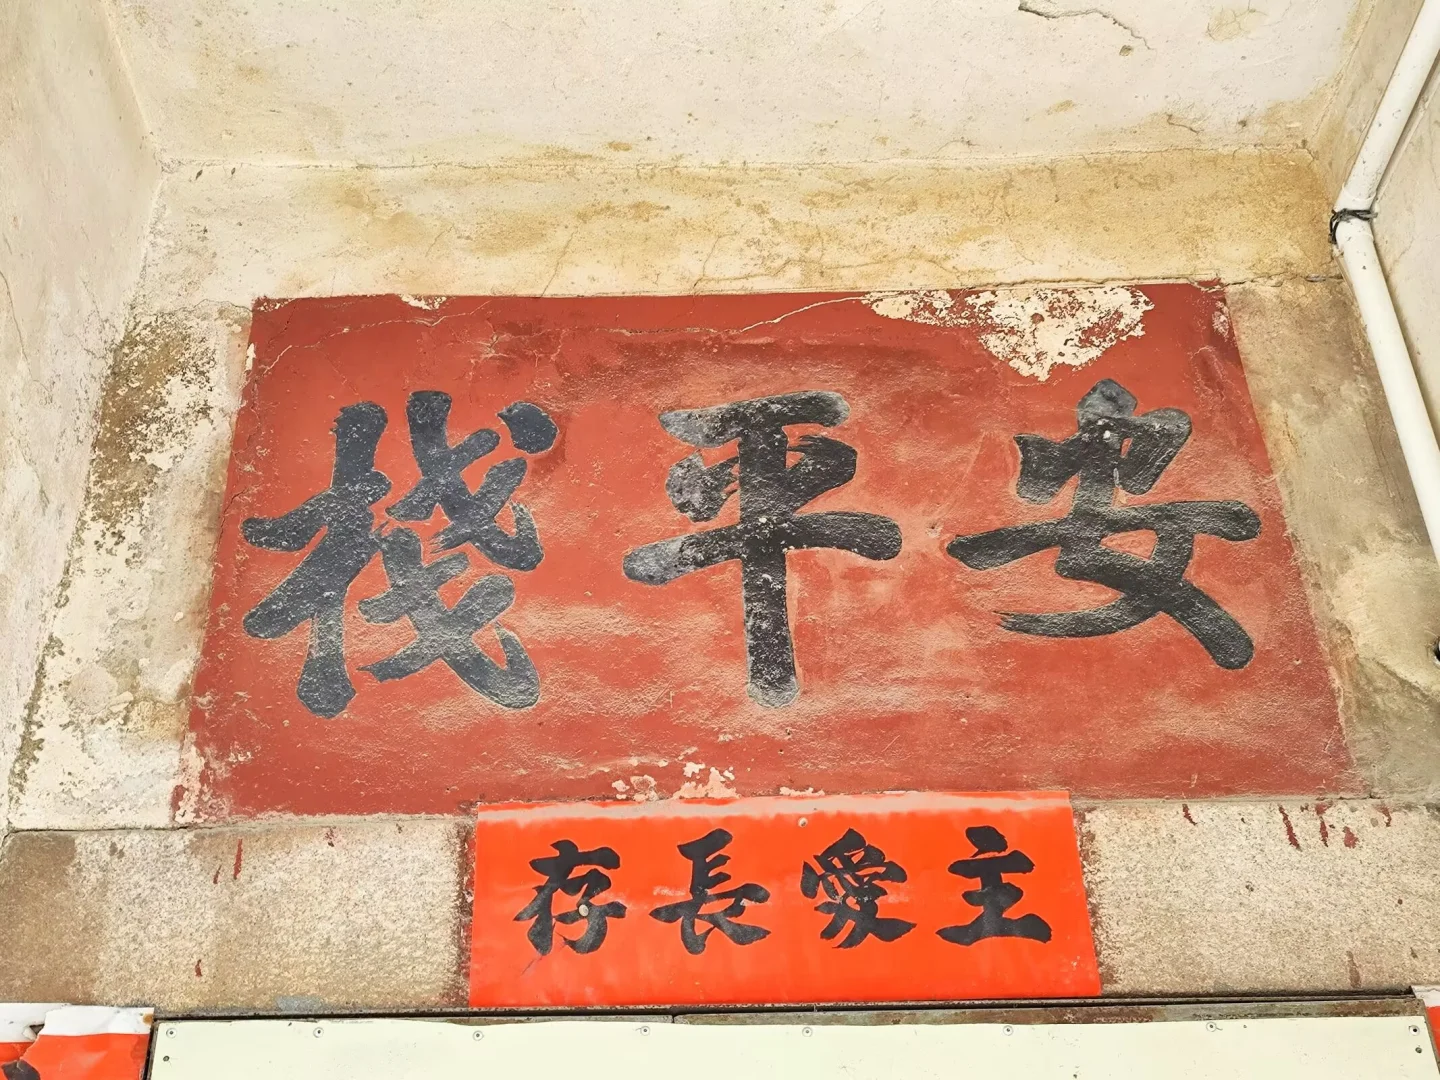 安平栈
主愛長存